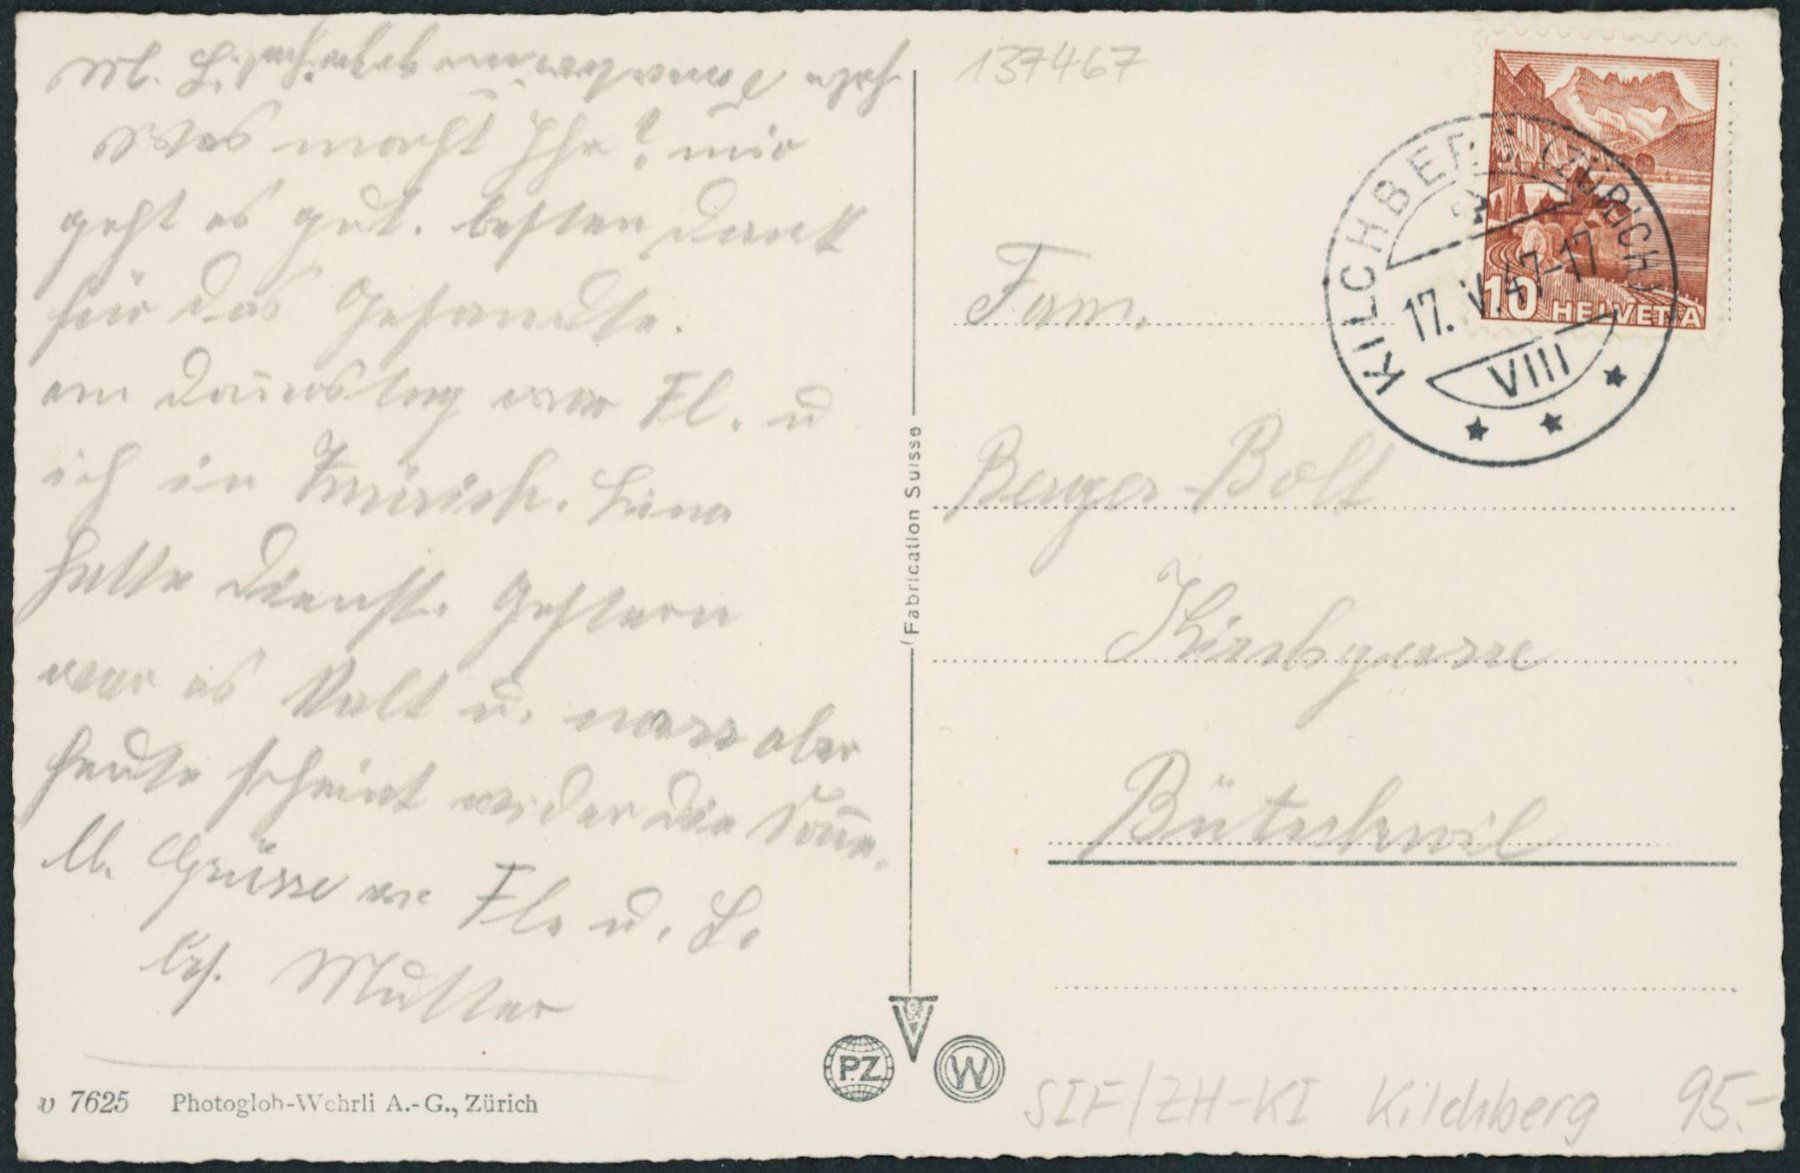 Was macht Ihr? mir
geht es gut. besten Dank
für das Gesandte.
am Donnerstag war Fl. u
ich in Zürich. Lina
hatte Dienst. Gestern
war es kalt u. nass aber
heute scheint wider die Sonne.
Grüsse an Fl. u. L.
Mutter
137467
Fam.
Berger-Bolt
Kirchgasse
Bütschwil
KILCHBERG (ZÜRICH)
17. V. 47-17
VIII
10 HELVETIA
Fabrication Suisse
PZ
W
v 7625 Photoglob-Wehrli A.-G., Zürich
SIF/ZH-KI Kilchberg 95.-